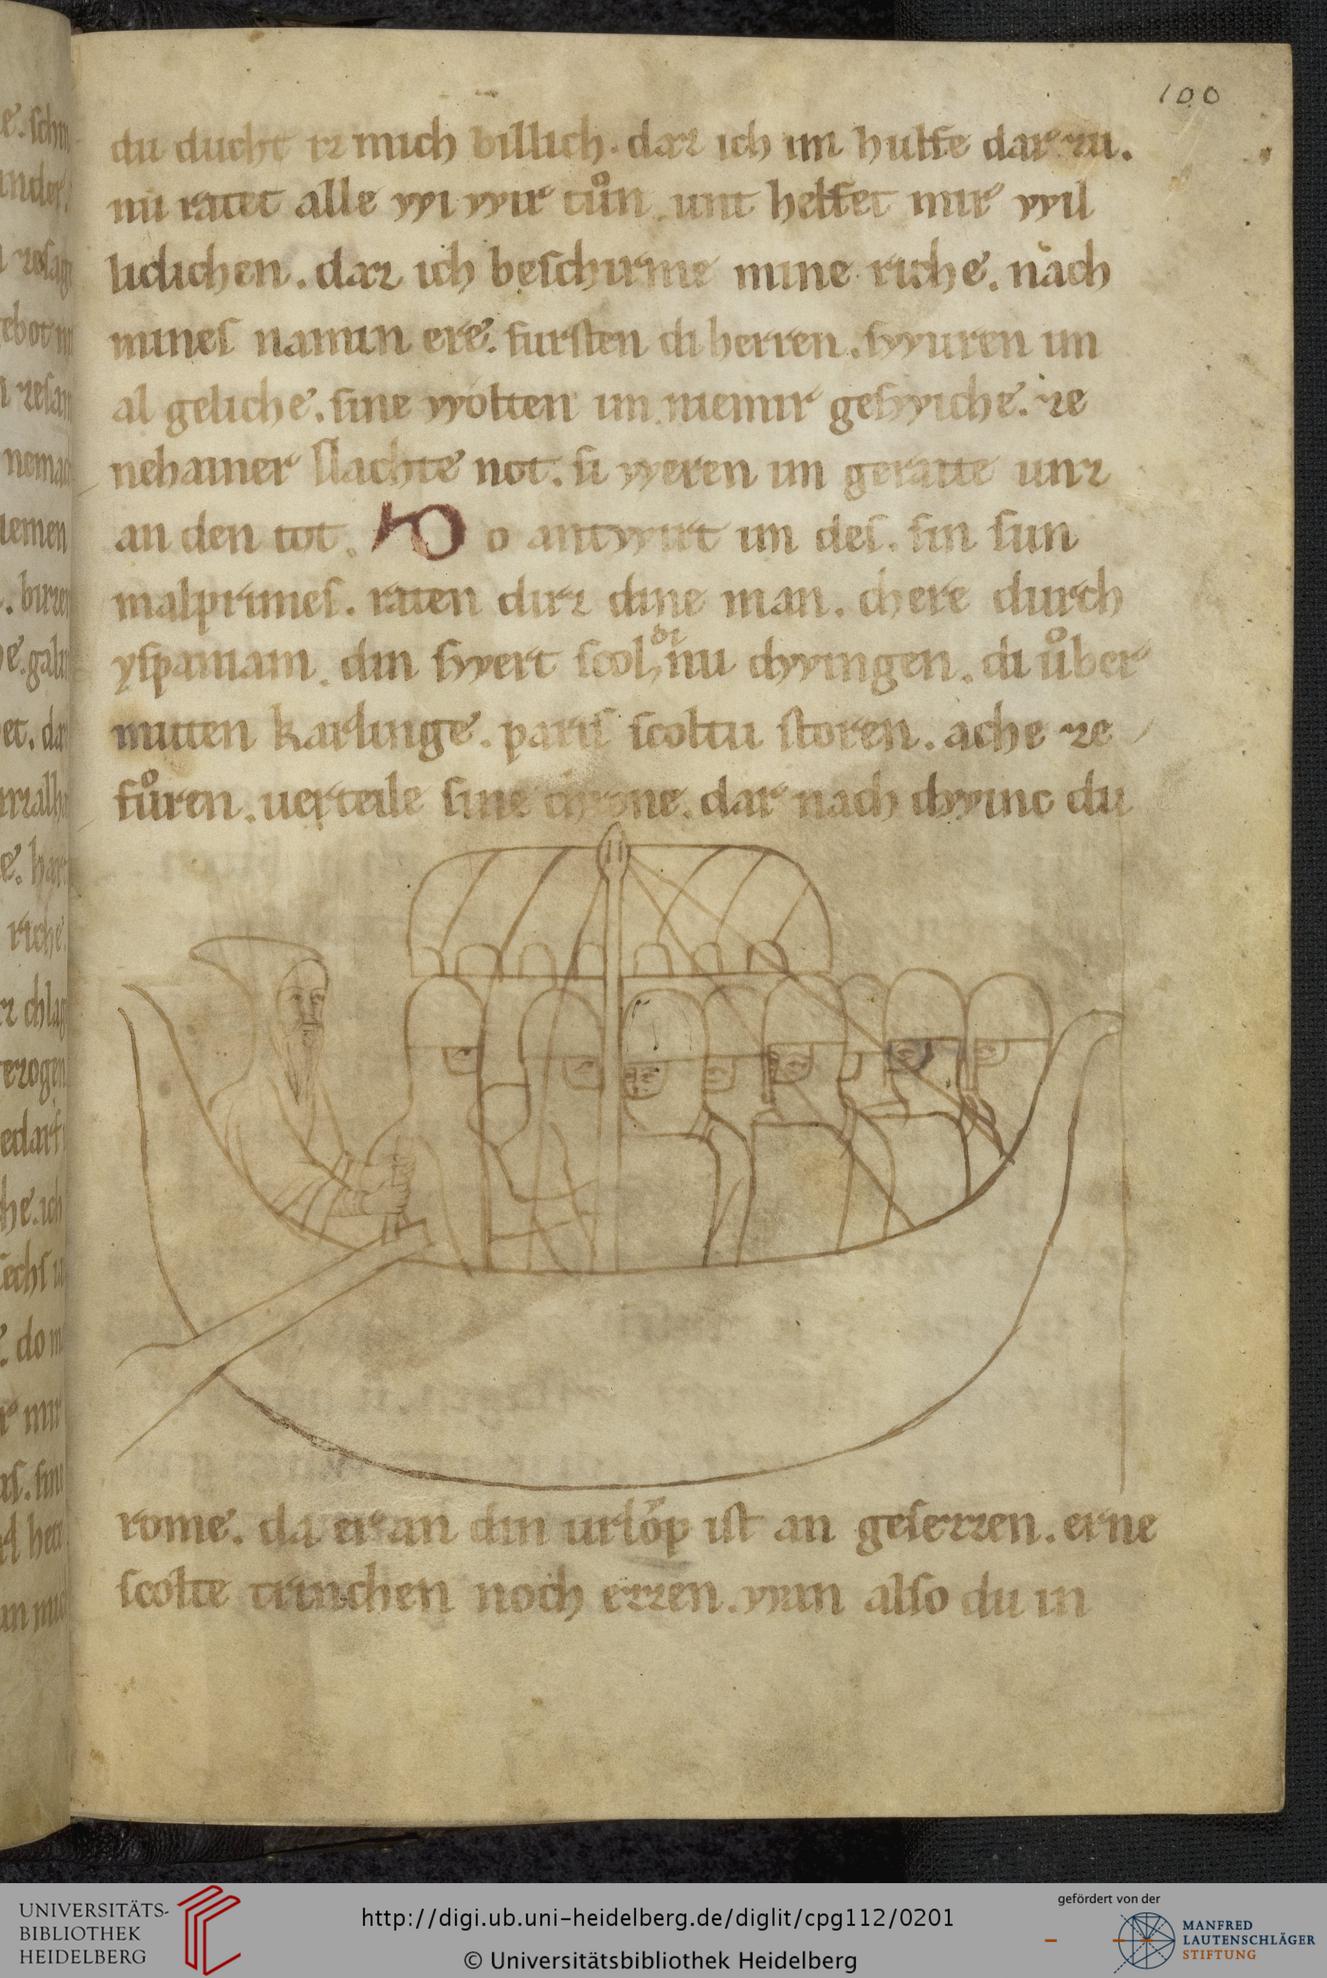 100
du ducht iz mich billich. daz ich im hulfe dar zu.
nu ratet alle wi wir tuͦn. unt helfet mir wil
lichlichen. daz ich beschirme mine riche. nach
mines namin ere. fursten di herren. swuren im
al geliche. sine wolten im niemir geswiche. ze
nehainer slachte not. si weren im geraite unz
an den tot. Do antwirt im des. sin sun
malprimes. raten dirz dine man. chere durch
yspaniam. din swert scol nu dwingen. di uͦber
muten karlinge. paris scoltu storen. ache ze
fuͦren. uerteile sine chrone. dar nach dwinc du
rome. da er an din urlop ist an gesezzen. erne
scolte trinchen noch ezzen. wan also du in
UNIVERSITÄTS-
BIBLIOTHEK
HEIDELBERG
http://digi.ub.uni-heidelberg.de/diglit/cpg112/0201
© Universitätsbibliothek Heidelberg
gefördert von der
MANFRED
LAUTENSCHLÄGER
STIFTUNG